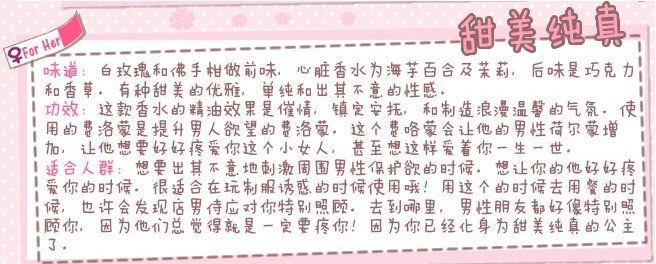 For Her
甜美纯真
味道：白玫瑰和佛手柑做前味，心脏香水为海芋百合及茉莉，后味是巧克力
和香草。有种甜美的优雅，单纯和出其不意的性感。
功效：这款香水的精油效果是催情，镇定安抚，和制造浪漫温馨的气氛。使
用的费洛蒙是提升男人欲望的费洛蒙。这个费咯蒙会让他的男性荷尔蒙增
加，让他想要好好疼爱你这个小女人，甚至想这样爱着你一生一世。
适合人群：想要出其不意地刺激周围男性保护欲的时候。想让你的他好好疼
爱你的时候。很适合在玩制服诱惑的时候使用哦！用这个的时候去用餐的时
候，也许会发现店男侍应对你特别照顾。去到哪里，男性朋友都好像特别照
顾你，因为他们总觉得就是一定要疼你！因为你已经化身为甜美纯真的公主
了。